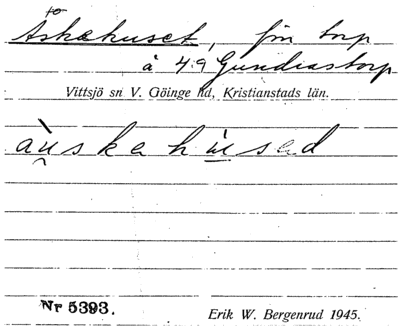 to
Åskahuset, förr torp
å 4:9 Gundrastorp
Vittsjö sn V. Göinge hd, Kristianstads län.
àu̯skahùsəd
Nr 5393.
Erik W. Bergenrud 1945.